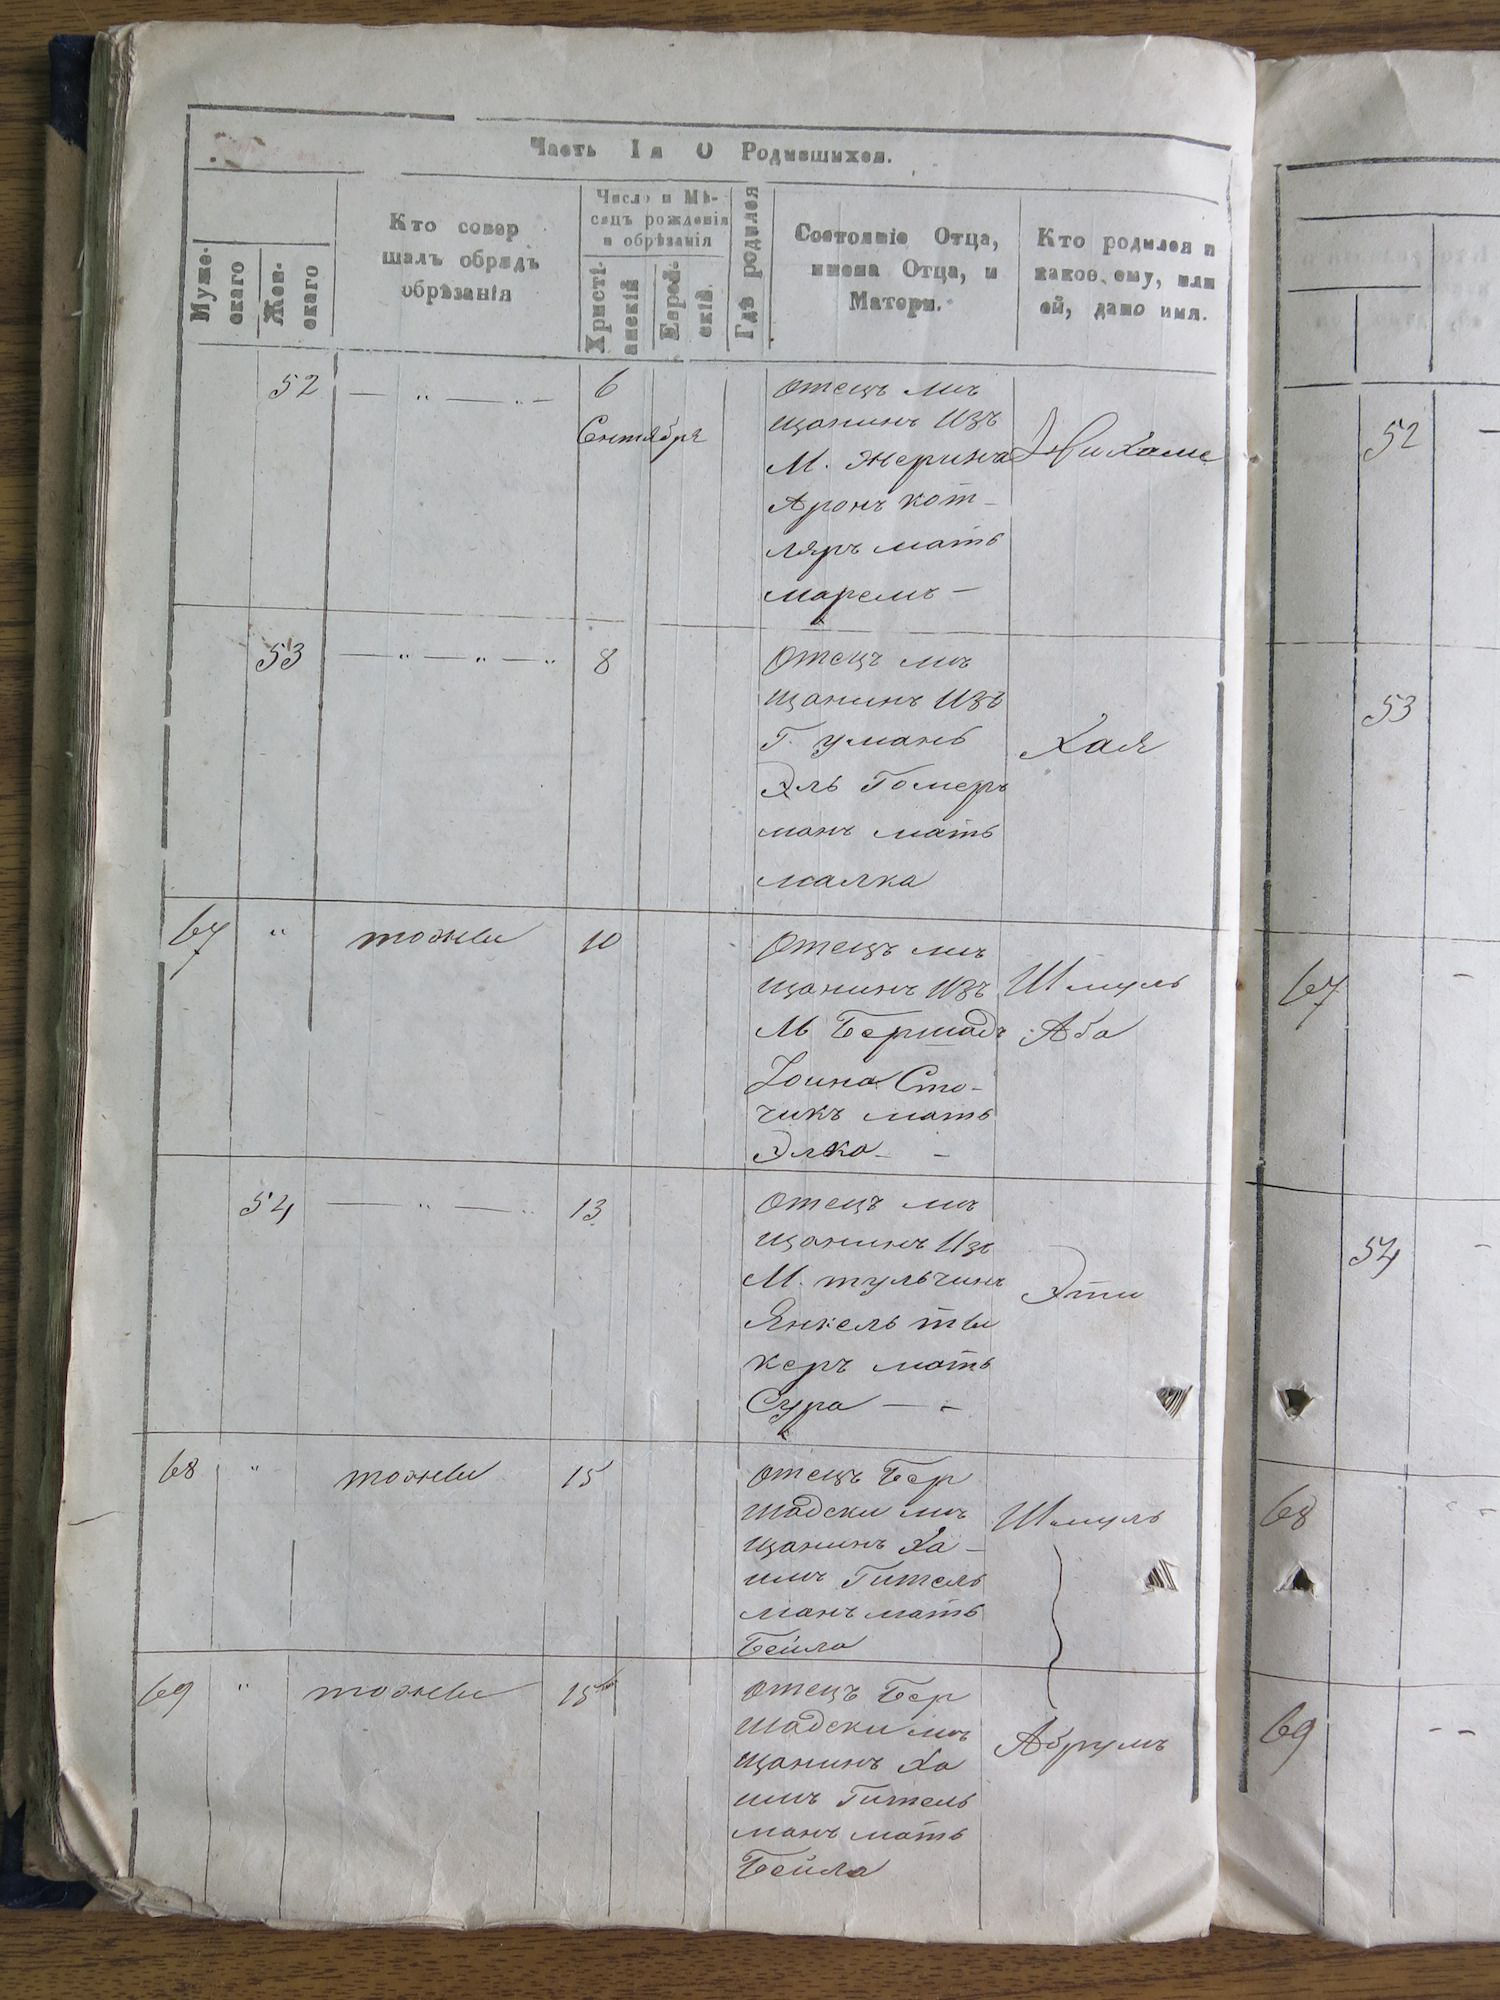 Часть Iя О Родившихся.
Муже-
скаго
Жен-
скаго
Кто совер
шалъ обрядъ
обрѣзанія
Число и Мѣ-
сяцъ рожденія
и обрѣзанія
Христі-
анскій
Еврей-
скій.
Гдѣ родился
Состояніе Отца,
имена Отца, и
Матери.
Кто родился и
какое ему, или
ей, дано имя.
52
6
Сентября
отецъ мѣ
щанинъ Изъ
М.
Аронъ кот-
ляръ мать
маремъ -
53
8
Отецъ мѣ
щанинъ Изъ
Г. умань
Эль
манъ мать
малка
Хая
67 " тожъи 10
Отецъ мѣ
щанинъ Изъ
М Бершадъ
Іоина Сто-
чикъ мать
Элка - -
Шмуль
Аба
54
13
Отецъ мѣ
щанинъ Изъ
М. тульчинъ
Янкель
керъ мать
Сура - -
Эти
68 " тожъи 15
Отецъ Бер
шадски мѣ
щанинъ Ха-
имъ Гитель
манъ мать
Бейла
Шмуль
69 " тожъи 15
Отецъ Бер
шадски мѣ
щанинъ Ха
имъ Гитель
манъ мать
Бейла
Абрумъ
52
53
67
54
68
69